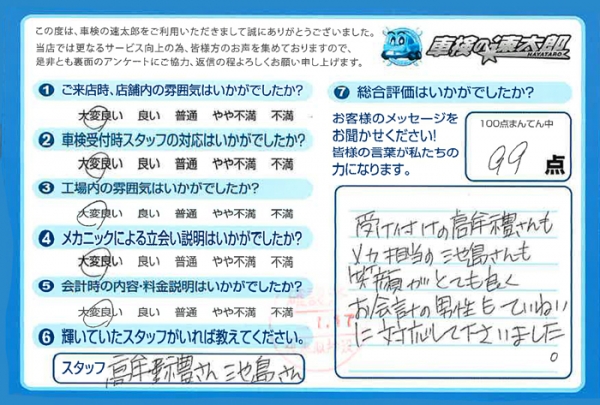 この度は、車検の速太郎をご利用いただきまして誠にありがとうございました。
当店では更なるサービス向上の為、皆様方のお声を集めておりますので、
是非とも裏面のアンケートにご協力、返信の程よろしくお願い申し上げます。
車検の速太郎
HAYATARO
1 ご来店時、店舗内の雰囲気はいかがでしたか?
大変良い 良い 普通 やや不満 不満
2 車検受付時スタッフの対応はいかがでしたか?
大変良い 良い 普通 やや不満 不満
3 工場内の雰囲気はいかがでしたか?
大変良い 良い 普通 やや不満 不満
4 メカニックによる立会い説明はいかがでしたか?
大変良い 良い 普通 やや不満 不満
5 会計時の内容・料金説明はいかがでしたか?
大変良い 良い 普通 やや不満 不満
6 輝いていたスタッフがいれば教えてください。
スタッフ 高牟禮さん 池島さん
7 総合評価はいかがでしたか?
お客様のメッセージを
お聞かせください!
皆様の言葉が私たちの
力になります。
100点まんてん中
99 点
受け付けの高牟禮さんも
メカ担当の池島さんも
笑顔がとても良く
お会計の男性もていねい
に対応して下さいました。